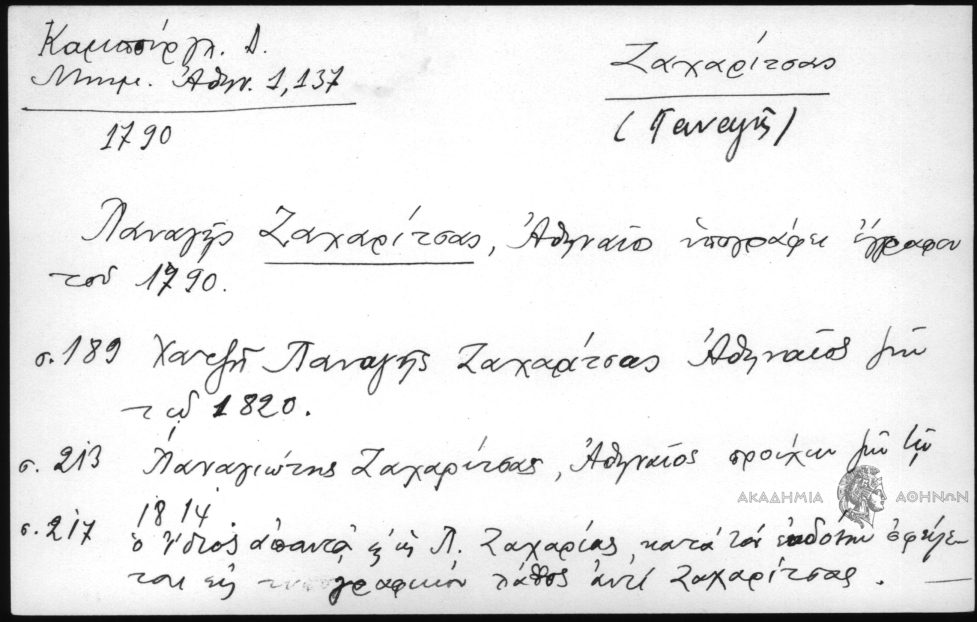 Καμπούρογλ. Δ.
Μνημ. Ἀθην. 1,137
1790
Ζαχαρίτσας
(Παναγῆς)
Παναγῆς Ζαχαρίτσας, Ἀθηναῖος ὑπογράφει ἔγγραφον
τοῦ 1790.
σ. 189 Χατζῆ Παναγῆς Ζαχαρίτσας Ἀθηναῖος
τῷ 1820.
σ. 213 Παναγιώτης Ζαχαρίτσας, Ἀθηναῖος
1814.
σ. 217 ὁ ἴδιος ἀπαντᾷ Π. Ζαχαρίας, κατὰ τὸν ἐκδότην ὀφείλε-
ται εἰς τυπογραφικὸν λάθος ἀντὶ Ζαχαρίτσας.
ΑΚΑΔΗΜΙΑ ΑΘΗΝΩΝ